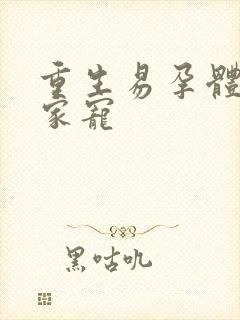 重生易孕體
家寵
黑咕叽